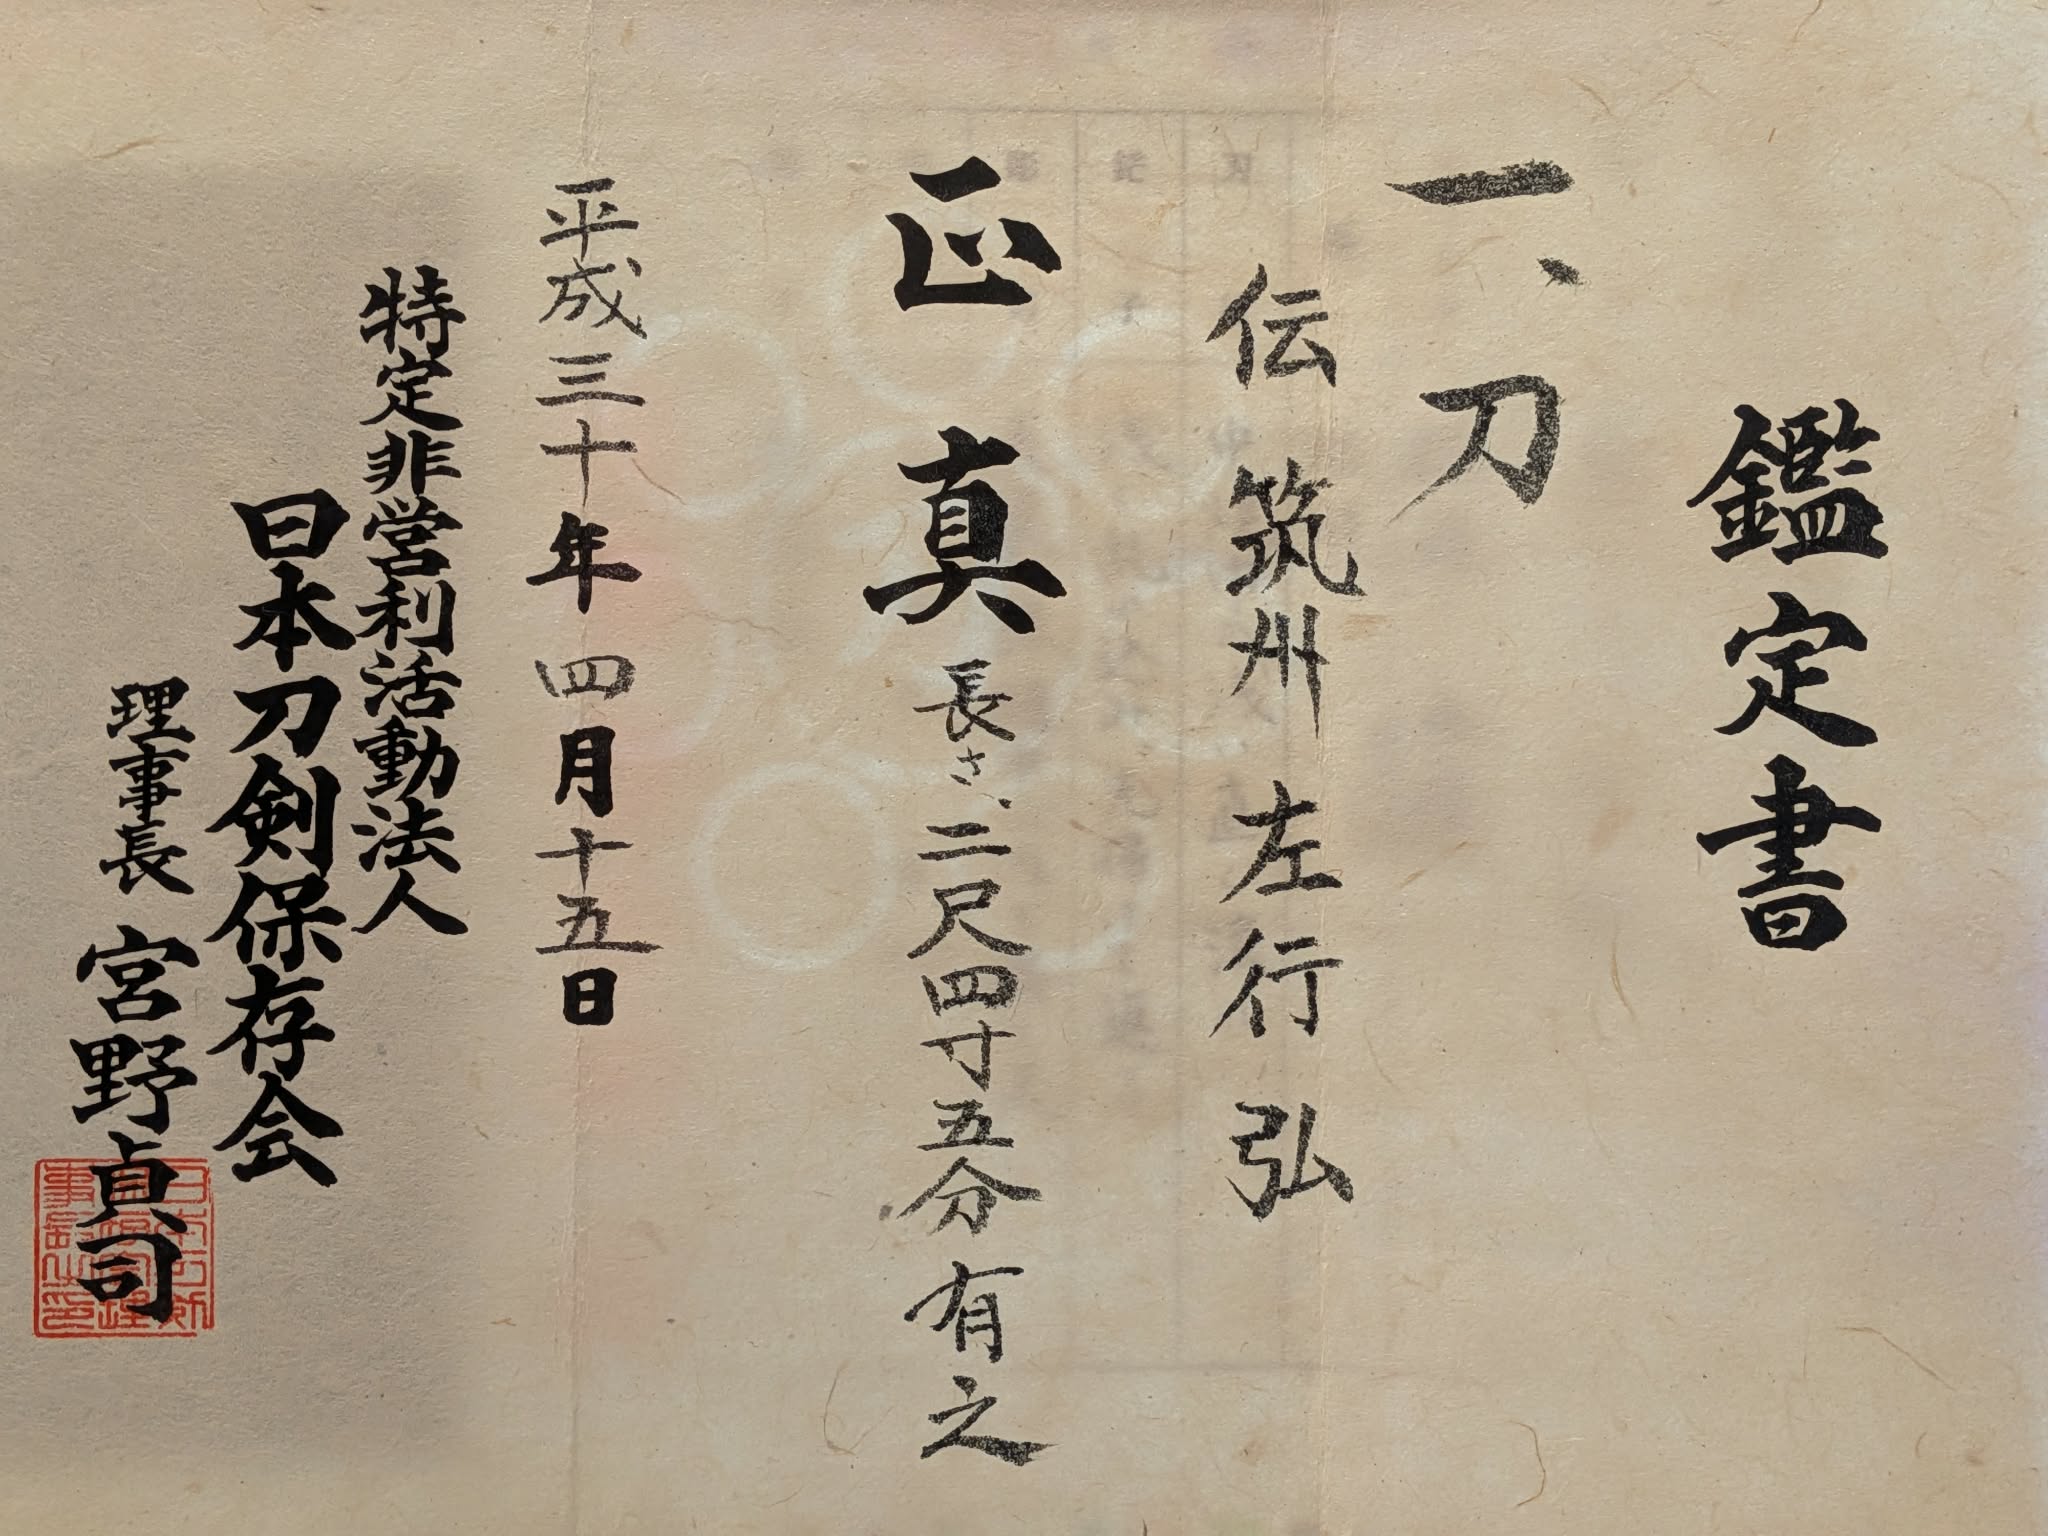 鑑定書
一、刀
伝筑州左行弘
正真長さ、二尺四寸五分有之
平成三十年四月十五日
特定非営利活動法人
日本刀剣保存会
理事長宮野貞司